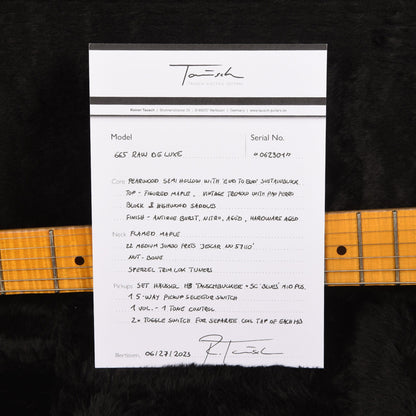 Tausch
Rainer Tausch | 89257 Illertissen | Germany | www.tausch-guitars.de
Model Serial No.
665 RAW DELUXE "062304"
Core PEARWOOD SEMI HOLLOW WITH 'END TO BODY' SUSTAINBLOCK
TOP - FIGURED MAPLE, VINTAGE TREMOLO WITH
BLOCK & HIGHWOOD SADDLES
FINISH - ANTIQUE BURST, NITRO, AGED, HARDWARE AGED
Neck FLAMED MAPLE
22 MEDIUM JUMBO FRETS 'JESCAR NU 57110'
NUT - BONE
SPERZEL TRIM LOK TUNERS
Pickups SET HÄUSSEL HB 'TAUSCHBUCKER' + SC 'BLUES' MID POS.
1 5-WAY PICKUP SELECTOR SWITCH
1 VOL. - 1 TONE CONTROL
2x TOGGLE SWITCH FOR SEPARATE COIL TAP OF EACH HB
Illertissen 06/27/2023 R. Tausch